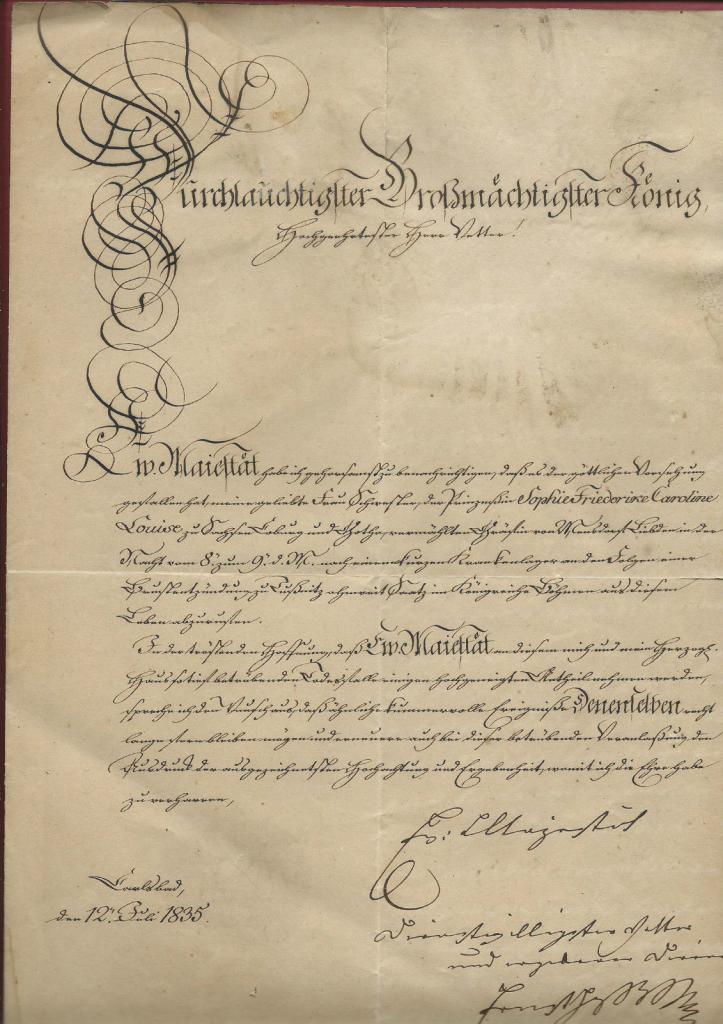 Durchlauchtigster Großmächtigster König,
Hochgeehrtester Herr Vetter!
Ew. Maiestät habe ich gehorsamst zu benachrichtigen, daß es der göttlichen Vorsehung
gefallen hat, meine geliebte Frau Schwester, der Prinzessin Sophie Friederike Caroline
Louise zu Sachsen Coburg und Gotha, vermählten Gräfin von Mensdorf in der
Nacht vom 8t. zum 9t. d. M. nach einem kurzen Krankenlager an den Folgen einer
Brustentzündung, zu Tuschitz ohnweit Saatz im Königreiche Böhmen aus diesem
Leben abzurufen.
In der tröstenden Hoffnung, daß Ew. Maiestät an diesem mich und mein Herzogl.
Haus so tief betrübenden Todesfalle einigen hochgeneigten Antheil nehmen werden,
spreche ich den Wunsch aus, daß ähnliche kummervolle Ereigniße Denenselben recht
lange fern bleiben mögen und erneuere auch bei dieser betrübenden Veranlaßung den
Ausdruck der ausgezeichnetsten Hochachtung und Ergebenheit, womit ich die Ehre habe
zu verharren,
Ew: Majestät
Carlsbad,
den 12t. Juli 1835.
Dienstwilligster Vetter
und ergebener Diener
Ernst